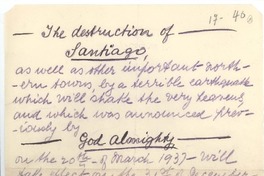 17-40
— The destruction of —
Santiago,
as well as other important north-
ern towns, by a terrible earthquake
which will shake the very heavens,
and which was announced prev-
iously by
— God Almighty —
on the 20th of March 1937 — will
take place on the